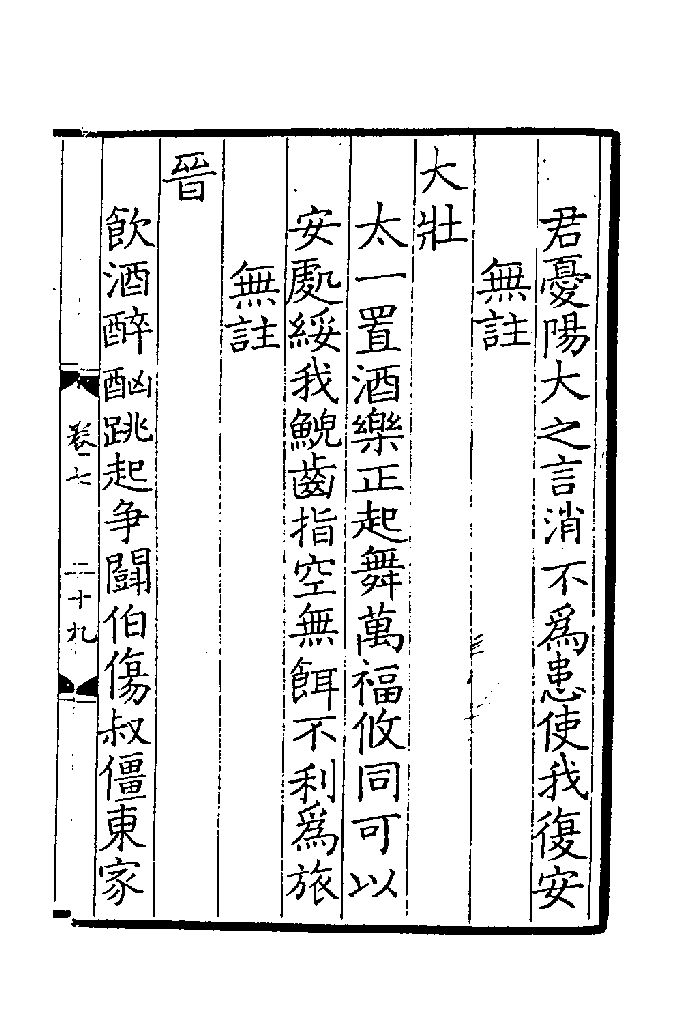 君憂陽大之言消不為患使我復安
無註
大壯
太一置酒樂正起舞萬福攸同可以
安處綏我鯢齒指空無餌不利為旅
無註
晉
飲酒醉酗跳起争鬪伯傷叔僵東家
卷七 二十九